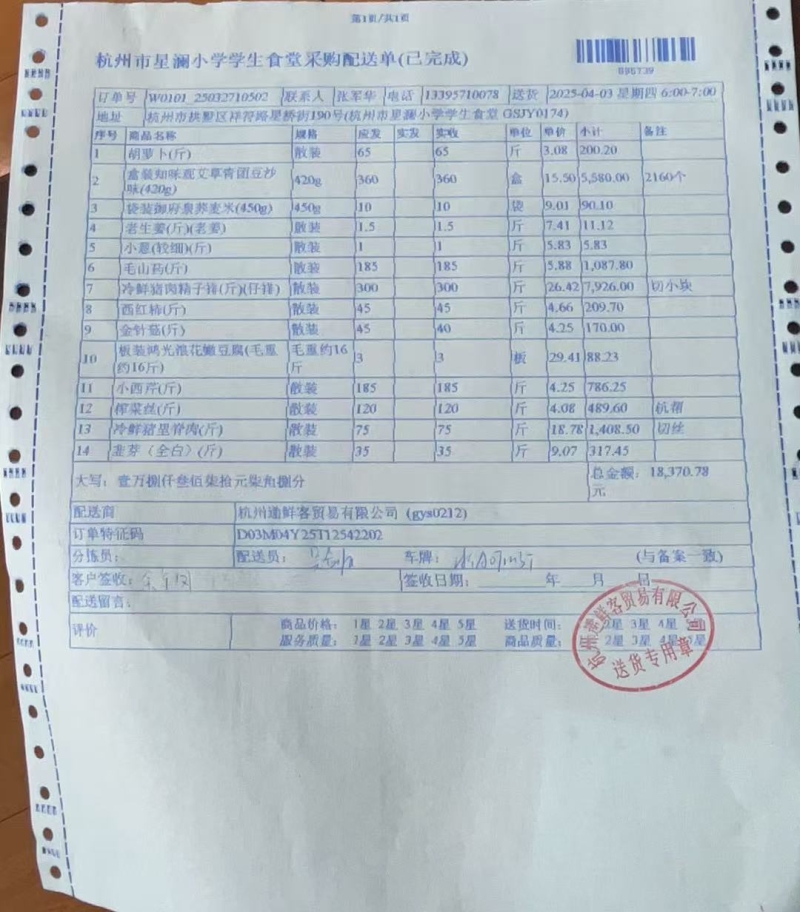 第1页/共1页
杭州市星澜小学学生食堂采购配送单(已完成)
订单号 W0101_25032710502 联系人 张军华 电话 13395710078 送货 2025-04-03 星期四 6:00-7:00
地址 杭州市拱墅区祥符路星桥街190号(杭州市星澜小学学生食堂 GSJY0174)
序号 商品名称 规格 应发 实发 实收 单位 单价 小计 备注
1 胡萝卜(斤) 散装 65 65 斤 3.08 200.20
2 盒装知味观艾草青团豆沙味(420g) 420g 360 360 盒 15.50 5,580.00 2160个
3 袋装御府泉荞麦米(450g) 450g 10 10 袋 9.01 90.10
4 老生姜(斤)(老姜) 散装 1.5 1.5 斤 7.41 11.12
5 小葱(较细)(斤) 散装 1 1 斤 5.83 5.83
6 毛山药(斤) 散装 185 185 斤 5.88 1,087.80
7 冷鲜猪肉精子排(斤)(仔排) 散装 300 300 斤 26.42 7,926.00 切小块
8 西红柿(斤) 散装 45 45 斤 4.66 209.70
9 金针菇(斤) 散装 45 40 斤 4.25 170.00
10 板装鸿光浪花嫩豆腐(毛重约16斤) 毛重约16斤 3 3 板 29.41 88.23
11 小西芹(斤) 散装 185 185 斤 4.25 786.25
12 榨菜丝(斤) 散装 120 120 斤 4.08 489.60 杭帮
13 冷鲜猪里脊肉(斤) 散装 75 75 斤 18.78 1,408.50 切丝
14 韭芽（全白）(斤) 散装 35 35 斤 9.07 317.45
大写：壹万捌仟叁佰柒拾元柒角捌分 总金额：18,370.78元
配送商 杭州递鲜客贸易有限公司 (gys0212)
订单特征码 D03M04Y25T12542202
分拣员： 配送员： 车牌： (与备案一致)
客户签收： 签收日期： 年 月 日
配送留言：
评价 商品价格： 1星 2星 3星 4星 5星 送货时间： 星 3星 4星
服务质量： 1星 2星 3星 4星 5星 商品质量： 2星 3星 4星 星
杭州递鲜客贸易有限公司
送货专用章